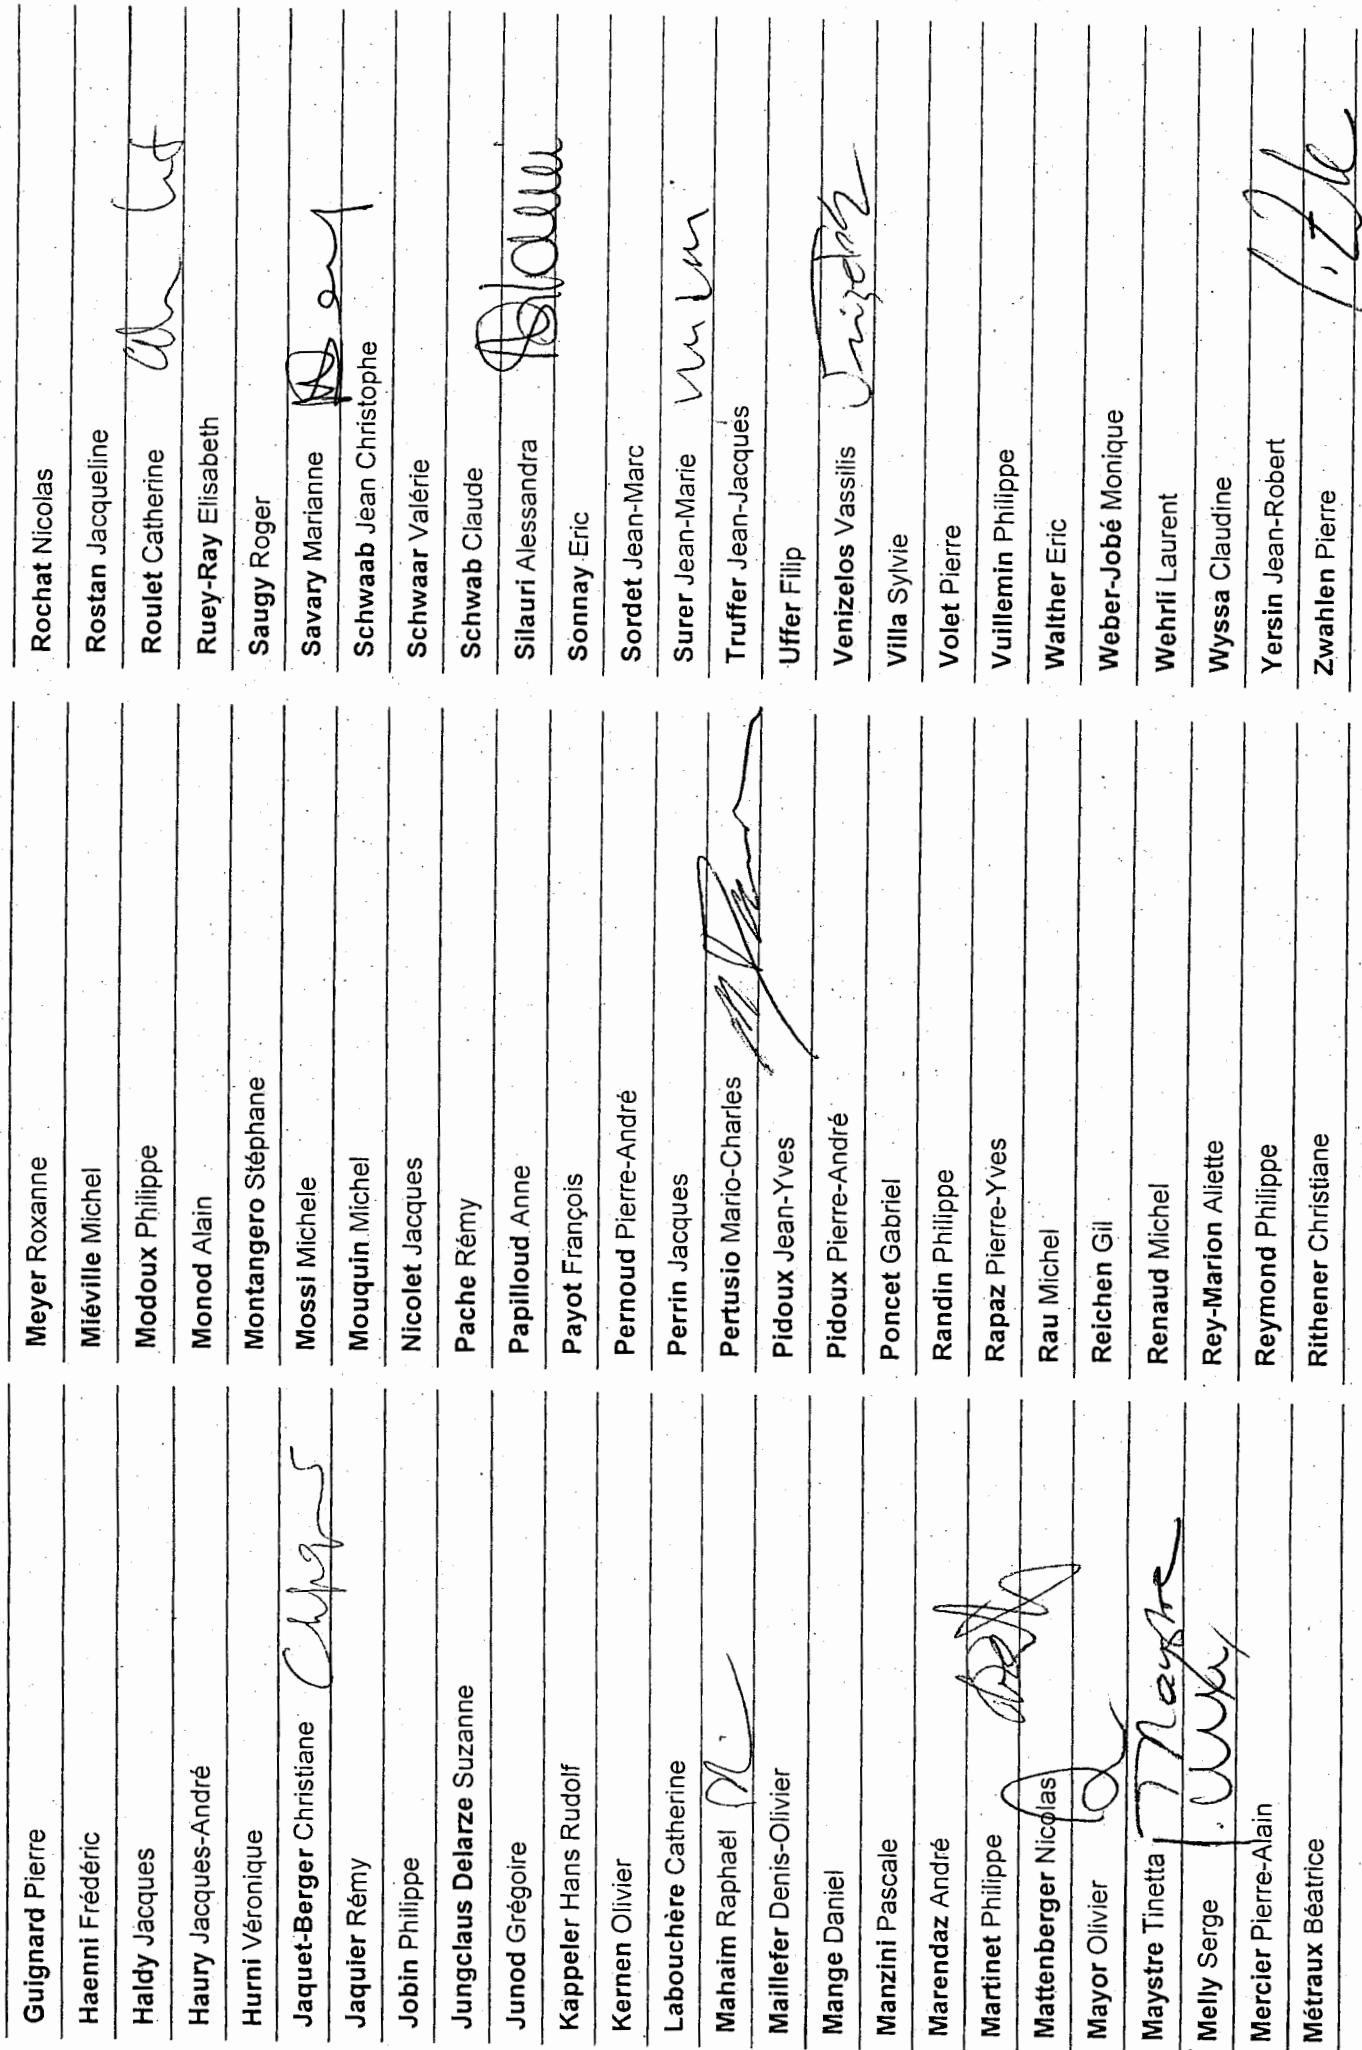 Guignard Pierre
Haenni Frédéric
Haldy Jacques
Haury Jacques-André
Hurni Véronique
Jaquet-Berger Christiane
Jaquier Rémy
Jobin Philippe
Jungclaus Delarze Suzanne
Junod Grégoire
Kappeler Hans Rudolf
Kernen Olivier
Labouchère Catherine
Mahaim Raphaël
Maillefer Denis-Olivier
Mange Daniel
Manzini Pascale
Marendaz André
Martinet Philippe
Mattenberger Nicolas
Mayor Olivier
Maystre Tinetta T. Maystre
Melly Serge
Mercier Pierre-Alain
Métraux Béatrice
Meyer Roxanne
Miéville Michel
Modoux Philippe
Monod Alain
Montangero Stéphane
Mossi Michele
Mouquin Michel
Nicolet Jacques
Pache Rémy
Papilloud Anne
Payot François
Pernoud Pierre-André
Perrin Jacques
Pertusio Mario-Charles
Pidoux Jean-Yves
Pidoux Pierre-André
Poncet Gabriel
Randin Philippe
Rapaz Pierre-Yves
Rau Michel
Reichen Gil
Renaud Michel
Rey-Marion Aliette
Reymond Philippe
Rithener Christiane
Rochat Nicolas
Rostan Jacqueline
Roulet Catherine
Ruey-Ray Elisabeth
Saugy Roger
Savary Marianne
Schwaab Jean Christophe
Schwaar Valérie
Schwab Claude
Silauri Alessandra
Sonnay Eric
Sordet Jean-Marc
Surer Jean-Marie
Truffer Jean-Jacques
Uffer Filip
Venizelos Vassilis
Villa Sylvie
Volet Pierre
Vuillemin Philippe
Walther Eric
Weber-Jobé Monique
Wehrli Laurent
Wyssa Claudine
Yersin Jean-Robert
Zwahlen Pierre